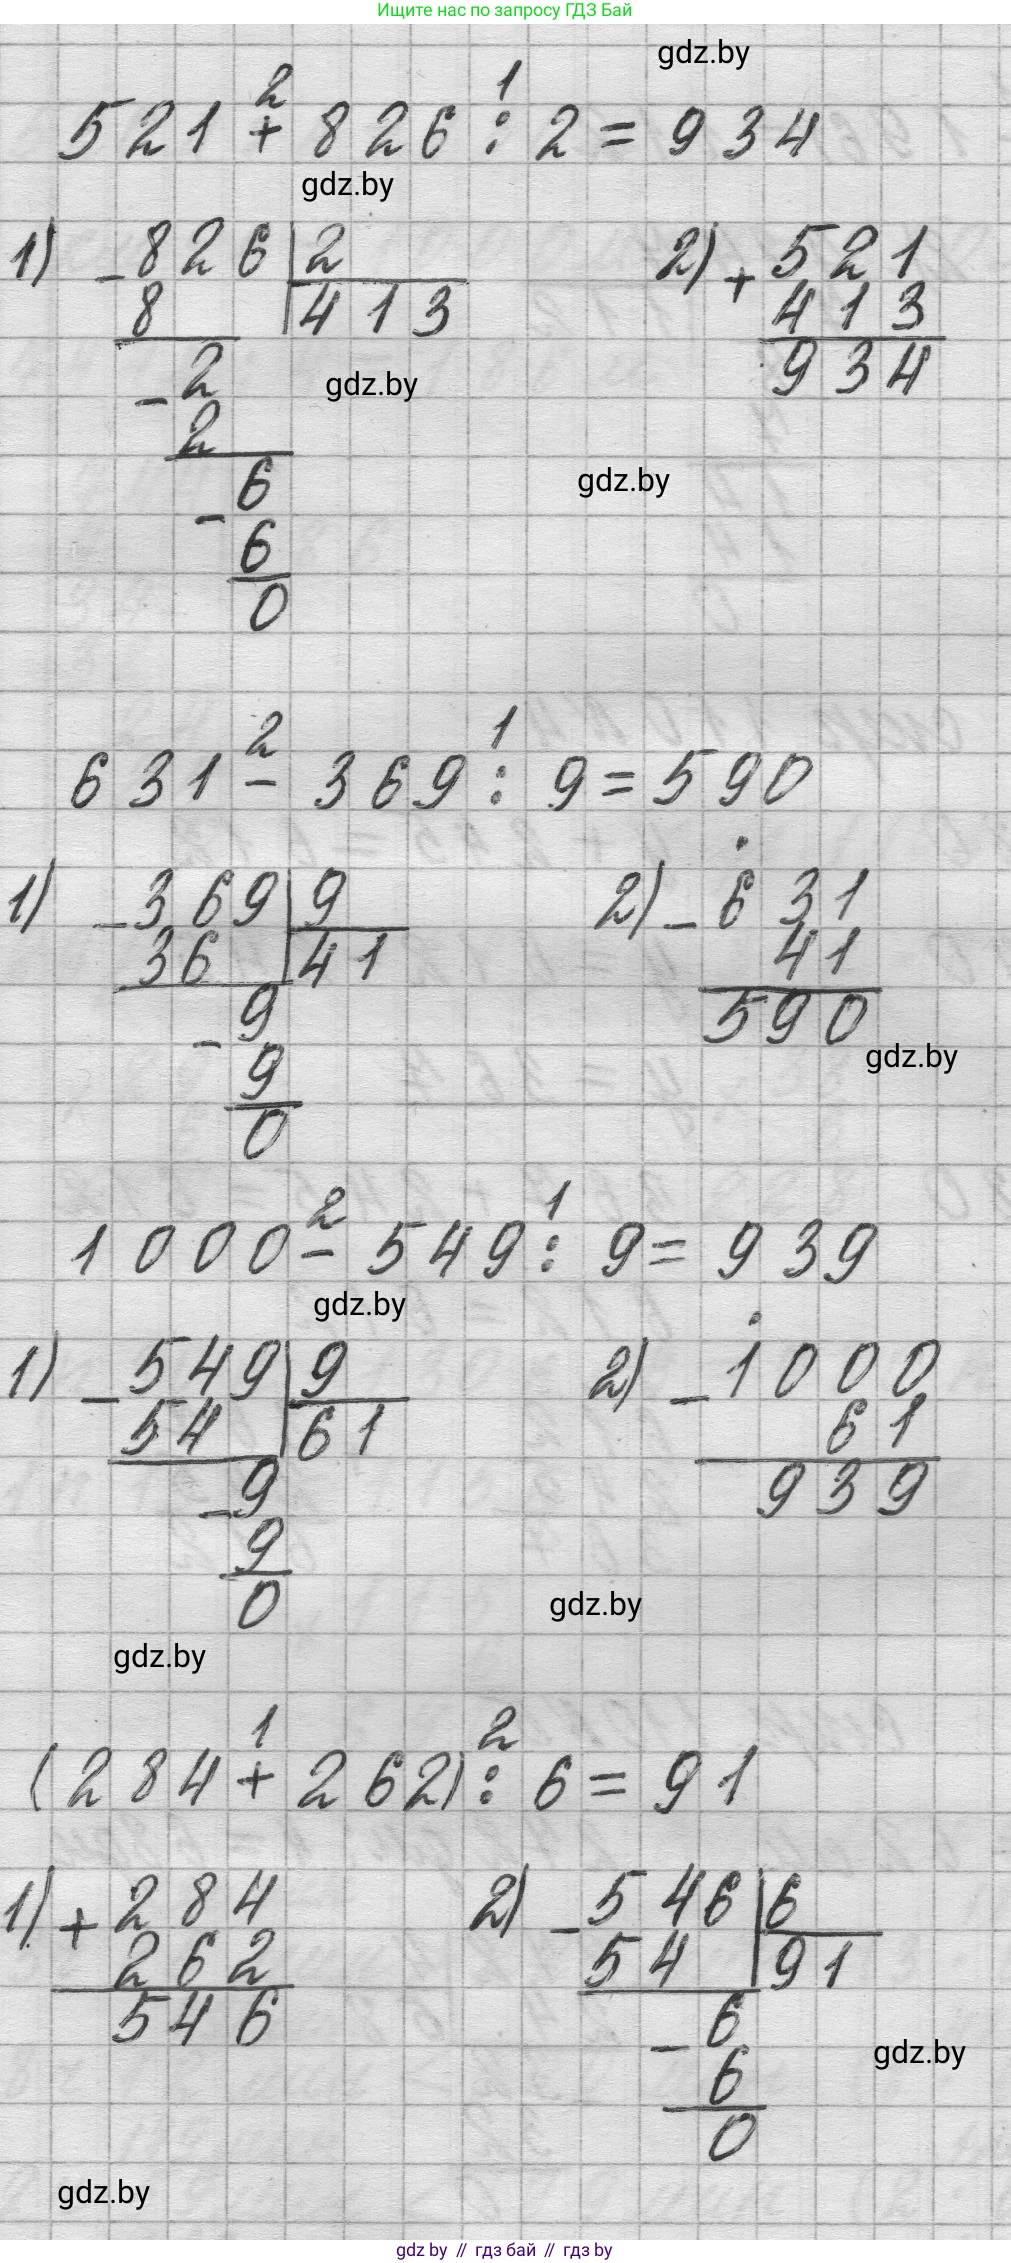 Ищите нас по запросу ГДЗ Бай
gdz.by
2 1
521 + 826 : 2 = 934
gdz.by
1) - 826 | 2 2) + 521
8 413 413
934
- 2 gdz.by
2
- 6 gdz.by
6
0
2 1
631 - 369 : 9 = 590
1) - 369 | 9 2) - 631
36 41 41
- 9 590
gdz.by
9
0
2 1
1000 - 549 : 9 = 939
gdz.by
1) - 549 | 9 2) - 1000
54 61 61
- 9 939
9
0
gdz.by
gdz.by
1 2
(284 + 262) : 6 = 91
1) + 284 2) - 546 | 6
262 54 91
546 - 6
gdz.by
6
0
gdz.by
gdz.by // гдз бай // gdz.by